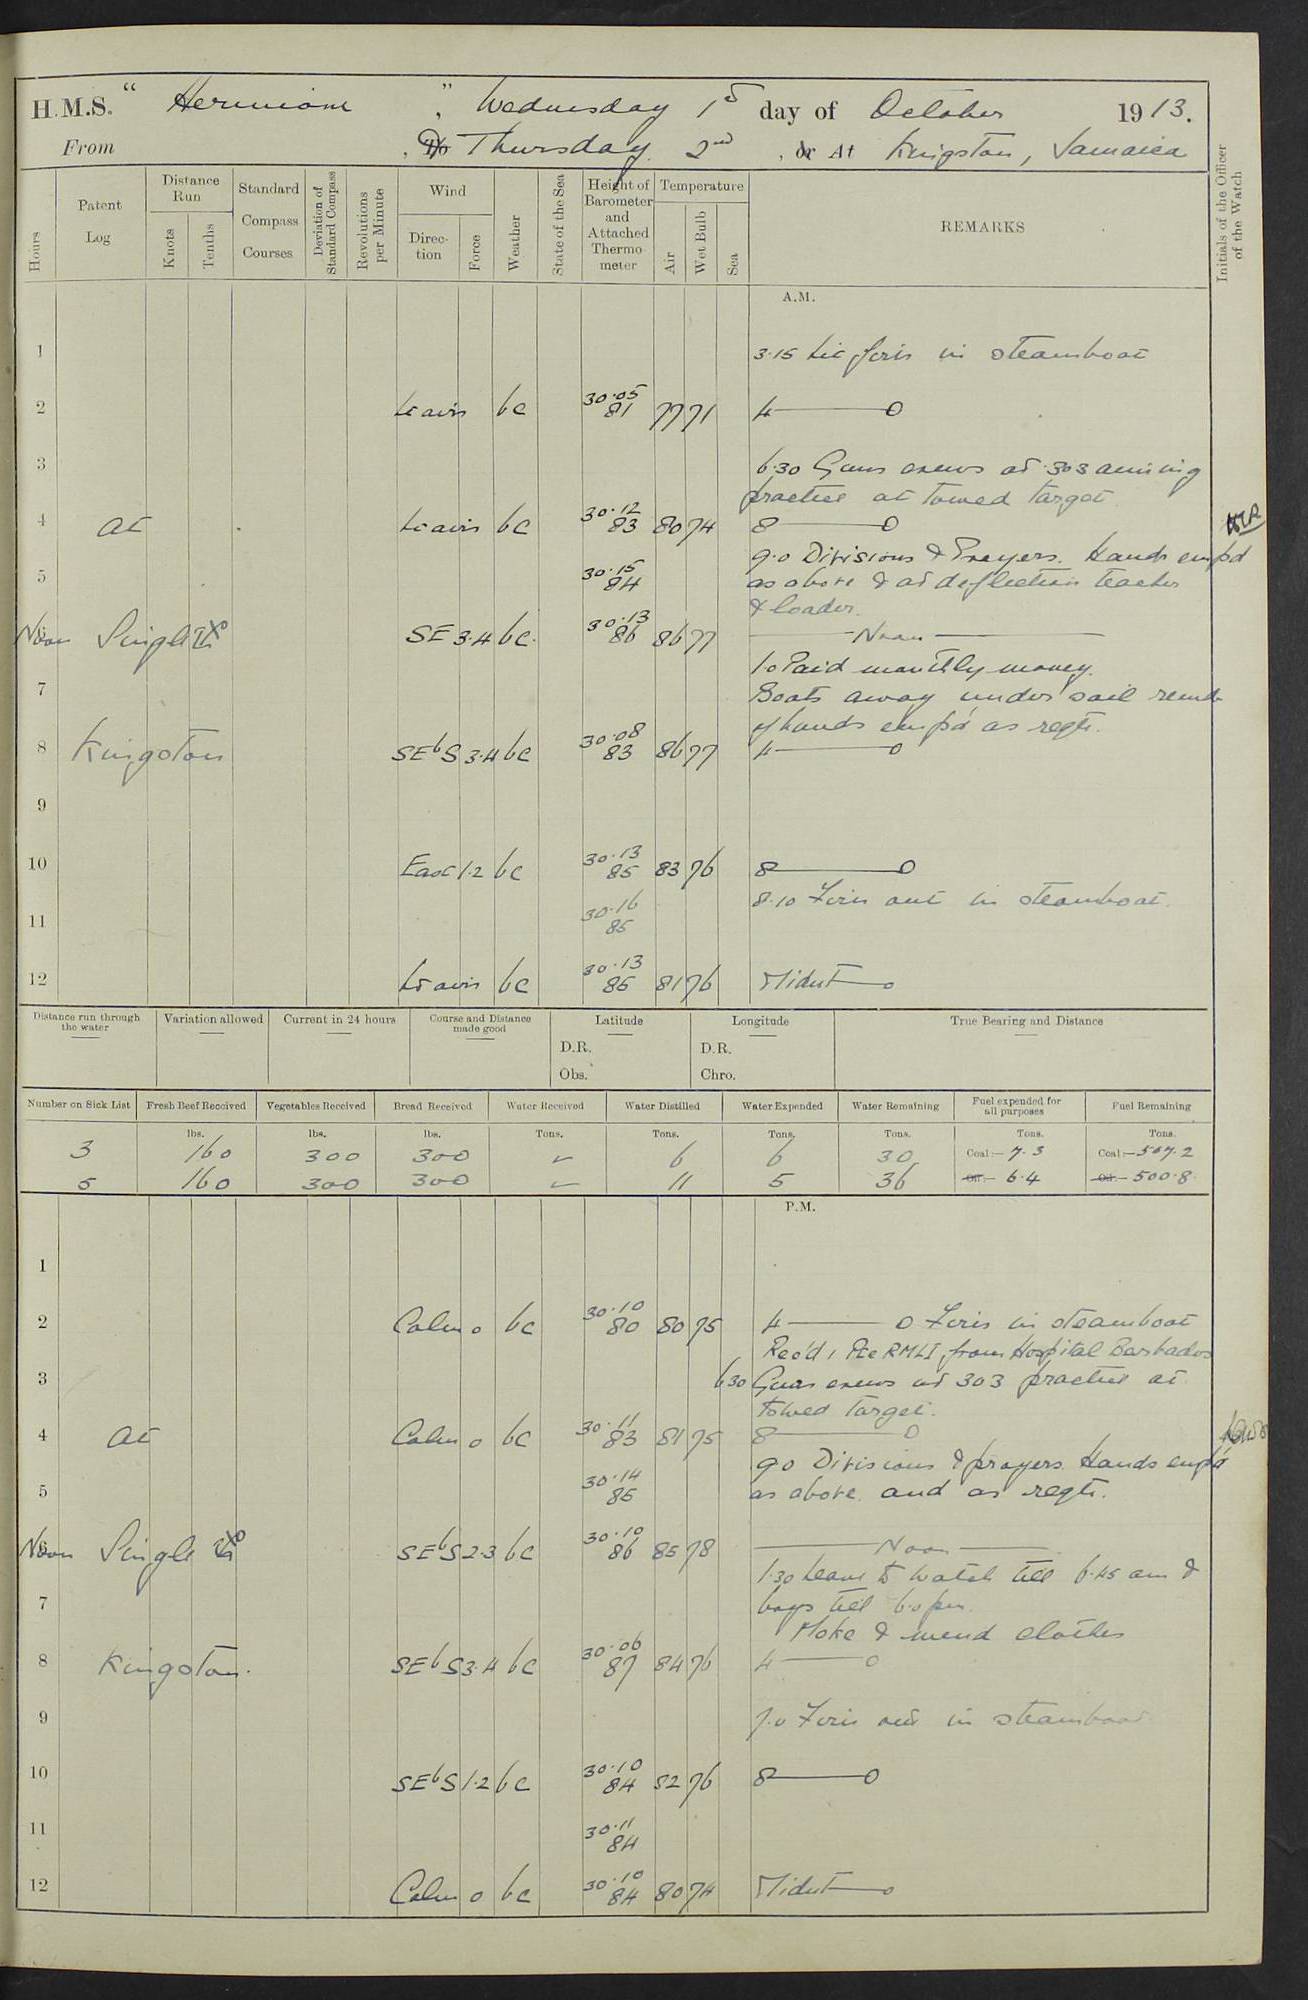 H.M.S. " Hermione ", Wednesday 1st day of October 1913.
From , To Thursday 2nd , or At Kingston, Jamaica
Hours
Patent Log
Distance Run
Knots
Tenths
Standard Compass Courses
Deviation of Standard Compass
Revolutions per Minute
Wind
Direction
Force
Weather
State of the Sea
Height of Barometer and Attached Thermometer
Temperature
Air
Wet Bulb
Sea
REMARKS
Initials of the Officer of the Watch
A.M.
1 3.15 in steamboat
2 Lt airs bc 30.05 81 77 71 4 — 0
3 6.30 Guns crews at .303 aiming
practice at towed target
4 at Lt airs bc 30.12 83 80 74 8 — 0
9.0 Divisions & Prayers. Hands emp'd
5 30.15 84 as above & at deflection teacher
& loader.
Noon Single SE 3.4 bc. 30.13 86 86 77 — Noon —
1.0 Paid monthly money.
7 Boats away under sail
of hands emp'd as reqte.
8 Kingston SEbS 3.4 bc 30.08 83 86 77 4 — 0
9
10 East 1.2 bc 30.13 85 83 76 8 — 0
8.10 in steamboat.
11 30.16 85
12 Lt airs bc 30.13 85 81 76 Midnt — 0
Distance run through the water
Variation allowed
Current in 24 hours
Course and Distance made good
Latitude
D.R.
Obs.
Longitude
D.R.
Chro.
True Bearing and Distance
Number on Sick List
Fresh Beef Received
Vegetables Received
Bread Received
Water Received
Water Distilled
Water Expended
Water Remaining
Fuel expended for all purposes
Fuel Remaining
lbs. lbs. lbs. Tons. Tons. Tons. Tons. Tons. Tons.
3 160 300 300 6 6 30 Coal:— 7.3 Coal:— 507.2
5 160 300 300 11 5 36 Oil:— 6.4 Oil:— 500.8
P.M.
1
2 Calm 0 bc 30.10 80 80 75 4 — 0 in steamboat
Rec'd 1 Pte RMLI from Hospital Barbados
3 6.30 Guns crews at 303 practice at
towed target.
4 at Calm 0 bc 30.11 83 81 75 8 — 0
9.0 Divisions & prayers. Hands emp'd
5 30.14 85 as above and as reqte.
Noon Single SEbS 2.3 bc 30.10 86 85 78 — Noon —
1.30 Leave to Watch till 6.45 am &
7 boys till 6.0 pm.
Make & mend clothes
8 Kingston. SEbS 3.4 bc 30.06 87 84 76 4 — 0
9 7.0 in steamboat
10 SEbS 1.2 bc 30.10 84 82 76 8 — 0
11 30.11 84
12 Calm 0 bc 30.10 84 80 74 Midnt — 0